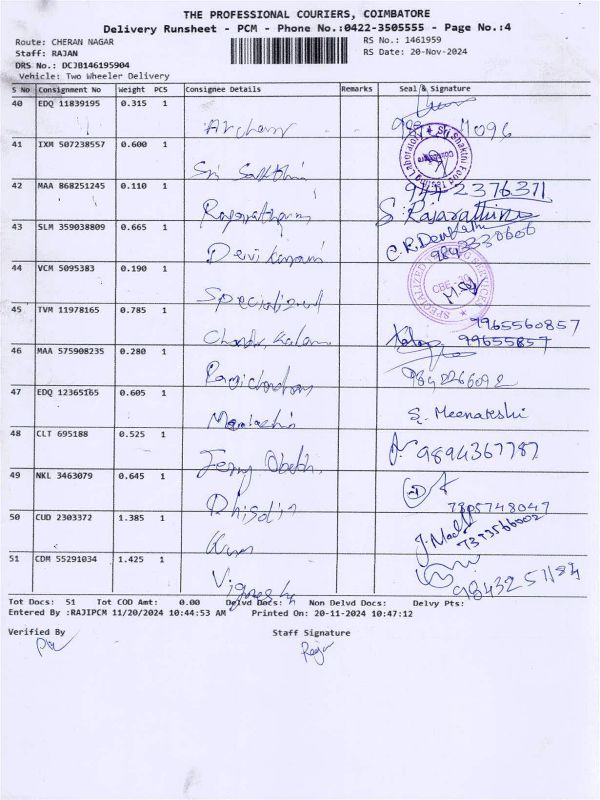 THE PROFESSIONAL COURIERS, COIMBATORE
Delivery Runsheet - PCM - Phone No.:0422-3505555 - Page No.:4
Route: CHERAN NAGAR RS No.: 1461959
Staff: RAJAN RS Date: 20-Nov-2024
DRS No.: DCJB146195904
Vehicle: Two Wheeler Delivery
S No Consignment No Weight PCS Consignee Details Remarks Seal & Signature
40 EDQ 11839195 0.315 1
41 IXM 507238557 0.600 1
Sri Sakthi
42 MAA 868251245 0.110 1
Rajarathinam S. Rajarathinam
43 SLM 359038809 0.665 1
Devi C.R.Devi
44 VCM 5095383 0.190 1
Specialized SPECIALIZED
45 TVM 11978165 0.785 1
7965560857
Chandra Kalam 99655857
46 MAA 575908235 0.280 1
Ravichandran 9842266092
47 EDQ 12365165 0.605 1
Meenakshi S. Meenakshi
48 CLT 695188 0.525 1
Jerry 9894367787
49 NKL 3463079 0.645 1
7305748047
50 CUD 2303372 1.385 1
7373566002
51 CDM 55291034 1.425 1
Vignesh 9843251184
Tot Docs: 51 Tot COD Amt: 0.00 Delvd Docs: Non Delvd Docs: Delvy Pts:
Entered By :RAJIPCM 11/20/2024 10:44:53 AM Printed On: 20-11-2024 10:47:12
Verified By Staff Signature
Rajan